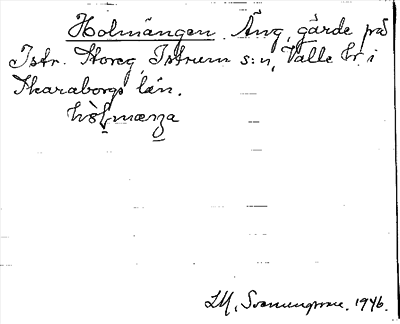 Holmängen. Äng, gärde på
Istr. Storeg, Istrum s:n, Valle hr. i
Skaraborgs län.
hòlmæŋa
1946.